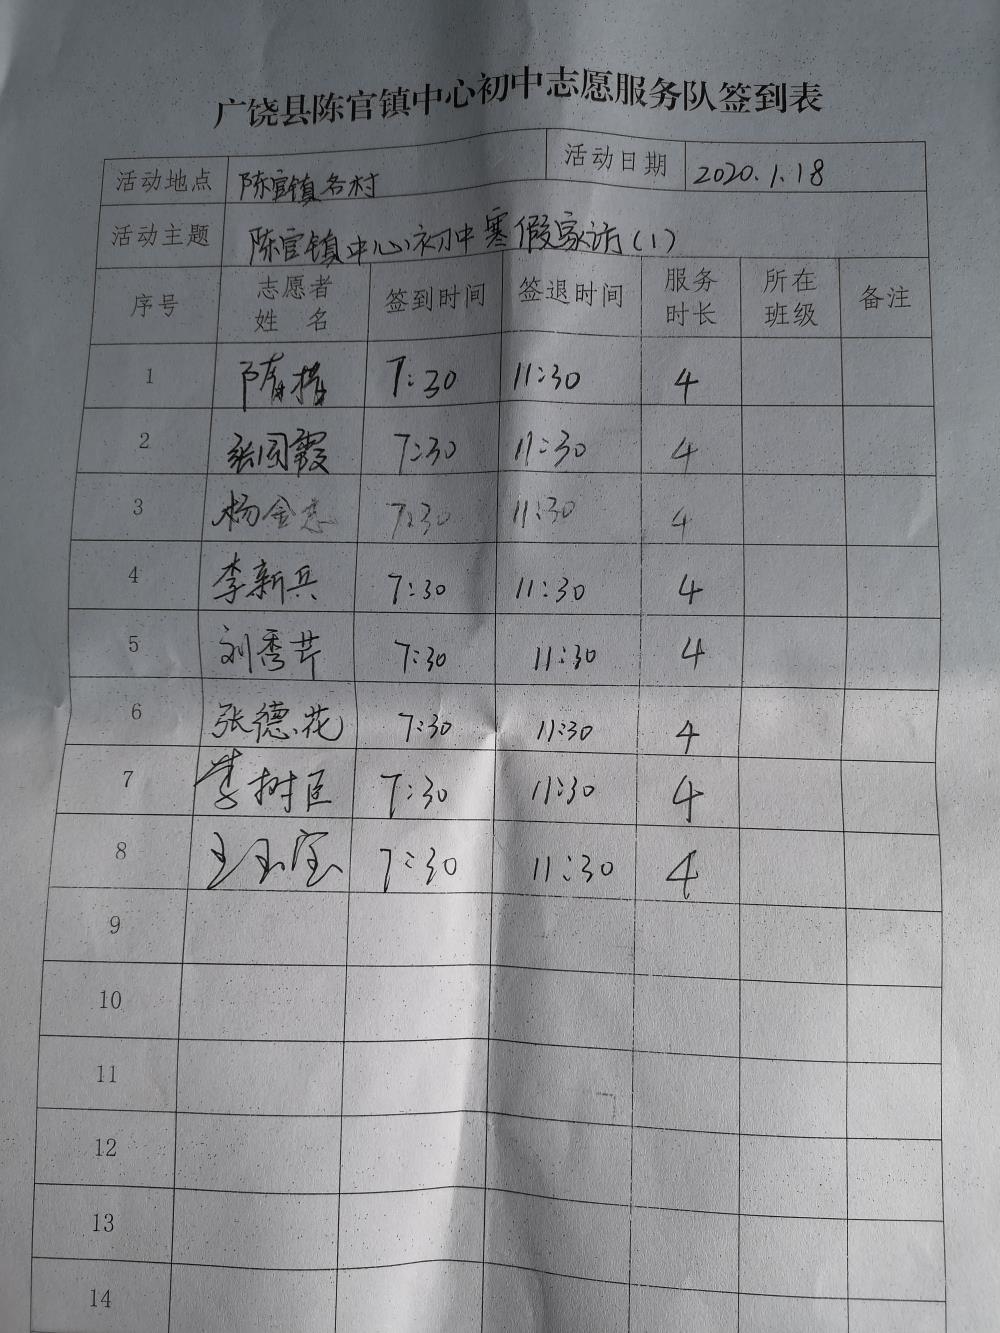 广饶县陈官镇中心初中志愿服务队签到表
活动地点 陈官镇各村 活动日期 2020.1.18
活动主题 陈官镇中心初中寒假家访(1)
序号 志愿者姓名 签到时间 签退时间 服务时长 所在班级 备注
1 7:30 11:30 4
2 张国霞 7:30 11:30 4
3 杨金志 7:30 11:30 4
4 李新兵 7:30 11:30 4
5 刘秀芹 7:30 11:30 4
6 张德花 7:30 11:30 4
7 李树臣 7:30 11:30 4
8 王玉宝 7:30 11:30 4
9
10
11
12
13
14